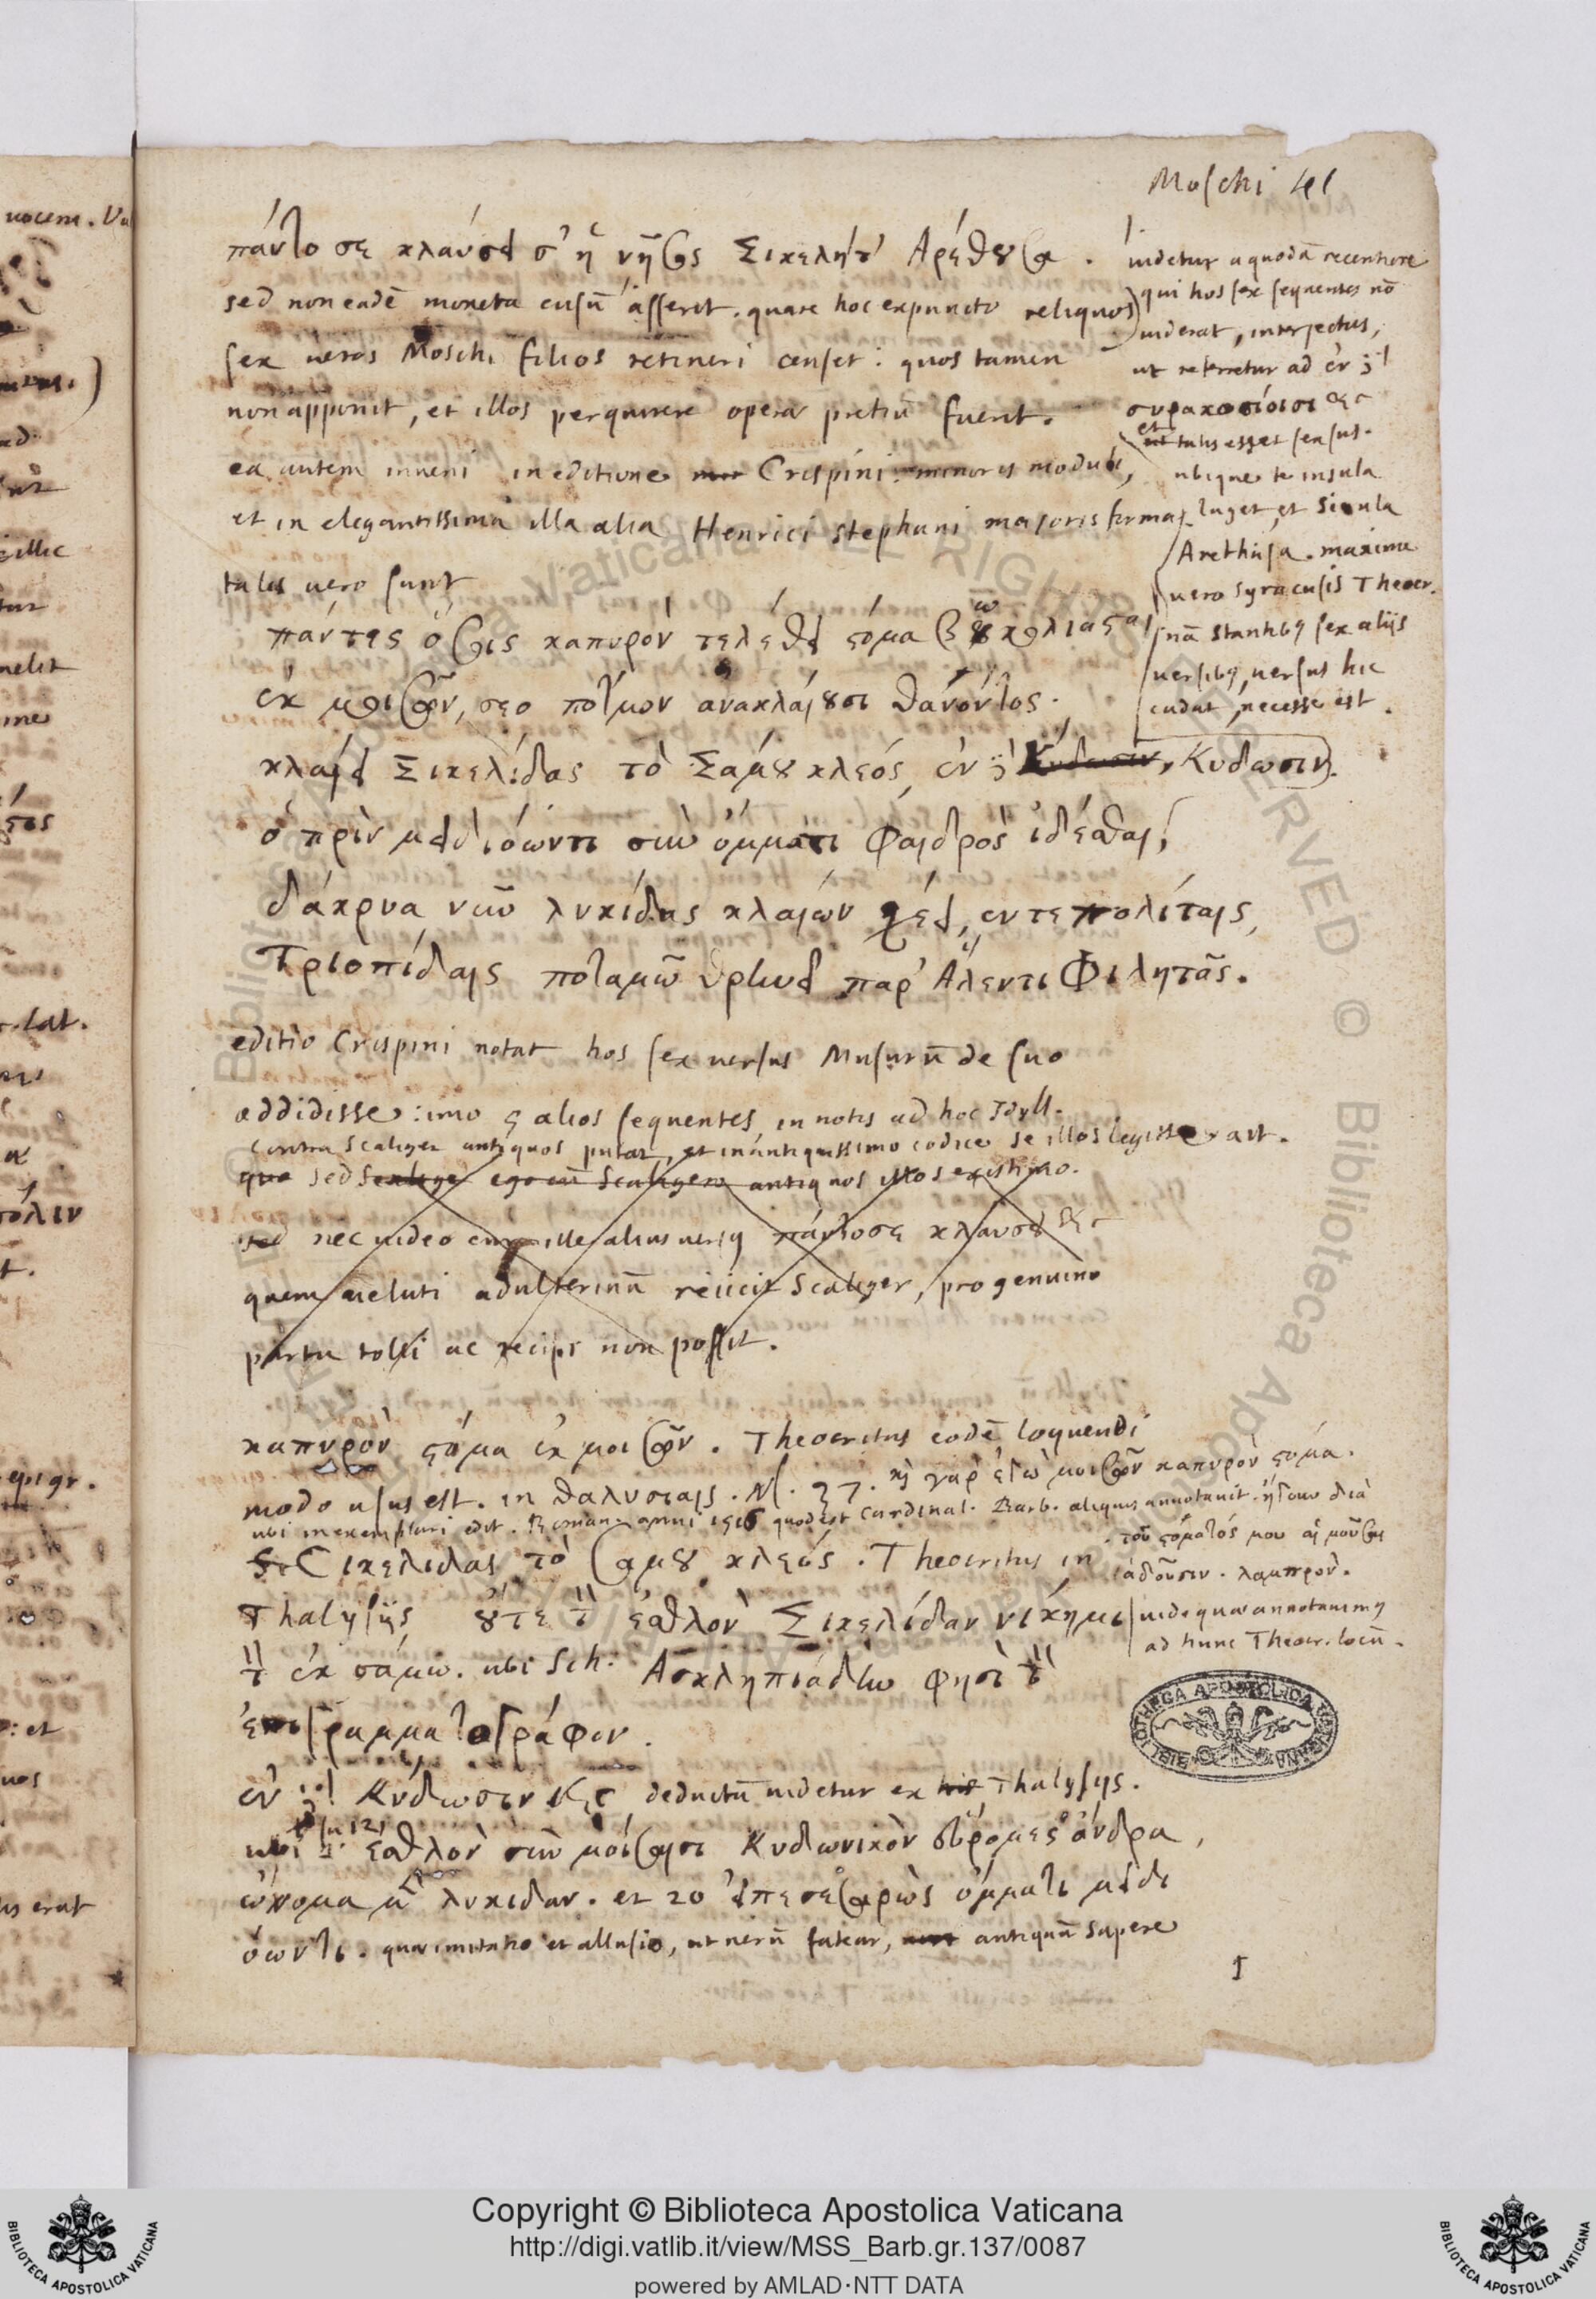 Moschi 41
πάντοσε κλαύσει σ' ἡ νῆσος Σικελή τ' Ἀρέθουσα.
sed non eadē moneta cusū asserit. quare hoc expuncto reliquos
sex veros Moschi filios retineri censet: quos tamen
non apponit, et illos perquirere opera pretiū fuerit.
ea autem inveni in editione Crispini minoris moduli,
et in elegantissima illa alia Henrici stephani majoris formae
tales vero sunt
videtur a quodā recentiore
qui hos sex sequentes nō
viderat, interjectus,
ut referretur ad ἐν δὲ
συρακοσίοισι
et talis esset sensus.
ubique te insula
luget, et Sicula
Arethusa. maxima
vero Syracusis Theocr.
nā stantibꝰ sex aliis
versibꝰ, versus hic
cadat, necesse est.
πάντες ὅσοις καπυρὸν τελέθει στόμα βουκολιασταὶ
ἐκ μοισῶν, σεο πότμον ἀνακλαίουσι θανόντος.
κλαίει Σικελίδας τὸ Σάμου κλέος, ἐν δὲ Κύδωσιν, Κυδωσιν
ὁ πρὶν μειδιόωντι σὺν ὄμματι φαιδρὸς ἰδέσθαι,
δάκρυα νῦν λυκίδας κλαίων χέει, ἐν τε πολίταις,
Τριοπίδαις ποταμῶ θρηνεῖ παρ' Ἅλεντι Φιλητᾶς.
editio Crispini notat hos sex versus Musurū de suo
addidisse: imo ς alios sequentes in notis ad hoc Idyll.
contra Scaliger antiquos putat, et in antiquissimo codice se illos legisse ait.
sed Scaliger ego cū Scaligero antiquos illos existimo.
sed nec video cur ille alius versꝰ πάντοσε κλαύσει
quem veluti adulterinū reiicit Scaliger, pro genuino
partu tolli ac recipi non possit.
καπυρὸν στόμα ἐκ μοισῶν. Theocritus eodē loquendi
modo usus est. in θαλυσίαις. 37. καὶ γὰρ ἐγὼ μοισῶν καπυρὸν στόμα.
ubi in exemplari edit. Romanae anni 1516 quod est Cardinal. Barb. aliquis annotavit. ἤγουν διὰ
τοῦ στόματός μου αἱ μοῦσαι
ᾄδουσιν. λαμπρὸν.
Σικελιδας τὸ σαμου κλεός. Theocritus in
Thalysiis οὔτε τὸν ἐσθλὸν Σικελίδαν νίκημι
τὸν ἐκ σάμω. ubi Sch. Ἀσκληπιάδην φησὶ τὸν
ἐπιγραμματογράφον.
vide quae annotavimꝰ
ad hunc Theocr. locū.
ἐν δὲ Κύδωσιν deductū videtur ex Thalysiis.
ubi ἐσθλὸν σὺν μοίσαισι Κυδωνικὸν εὕρομες ἄνδρα,
ὤνομα μὲν λυκιδαν. et 20 εἶπε σεσαρὼς ὄμματι μειδι
όωντι. quae imitatio et allusio, ut verū fatear, antiquā sapere
BIBLIOTHECA APOSTOLICA VATICANA
Copyright © Biblioteca Apostolica Vaticana
http://digi.vatlib.it/view/MSS_Barb.gr.137/0087
powered by AMLAD·NTT DATA